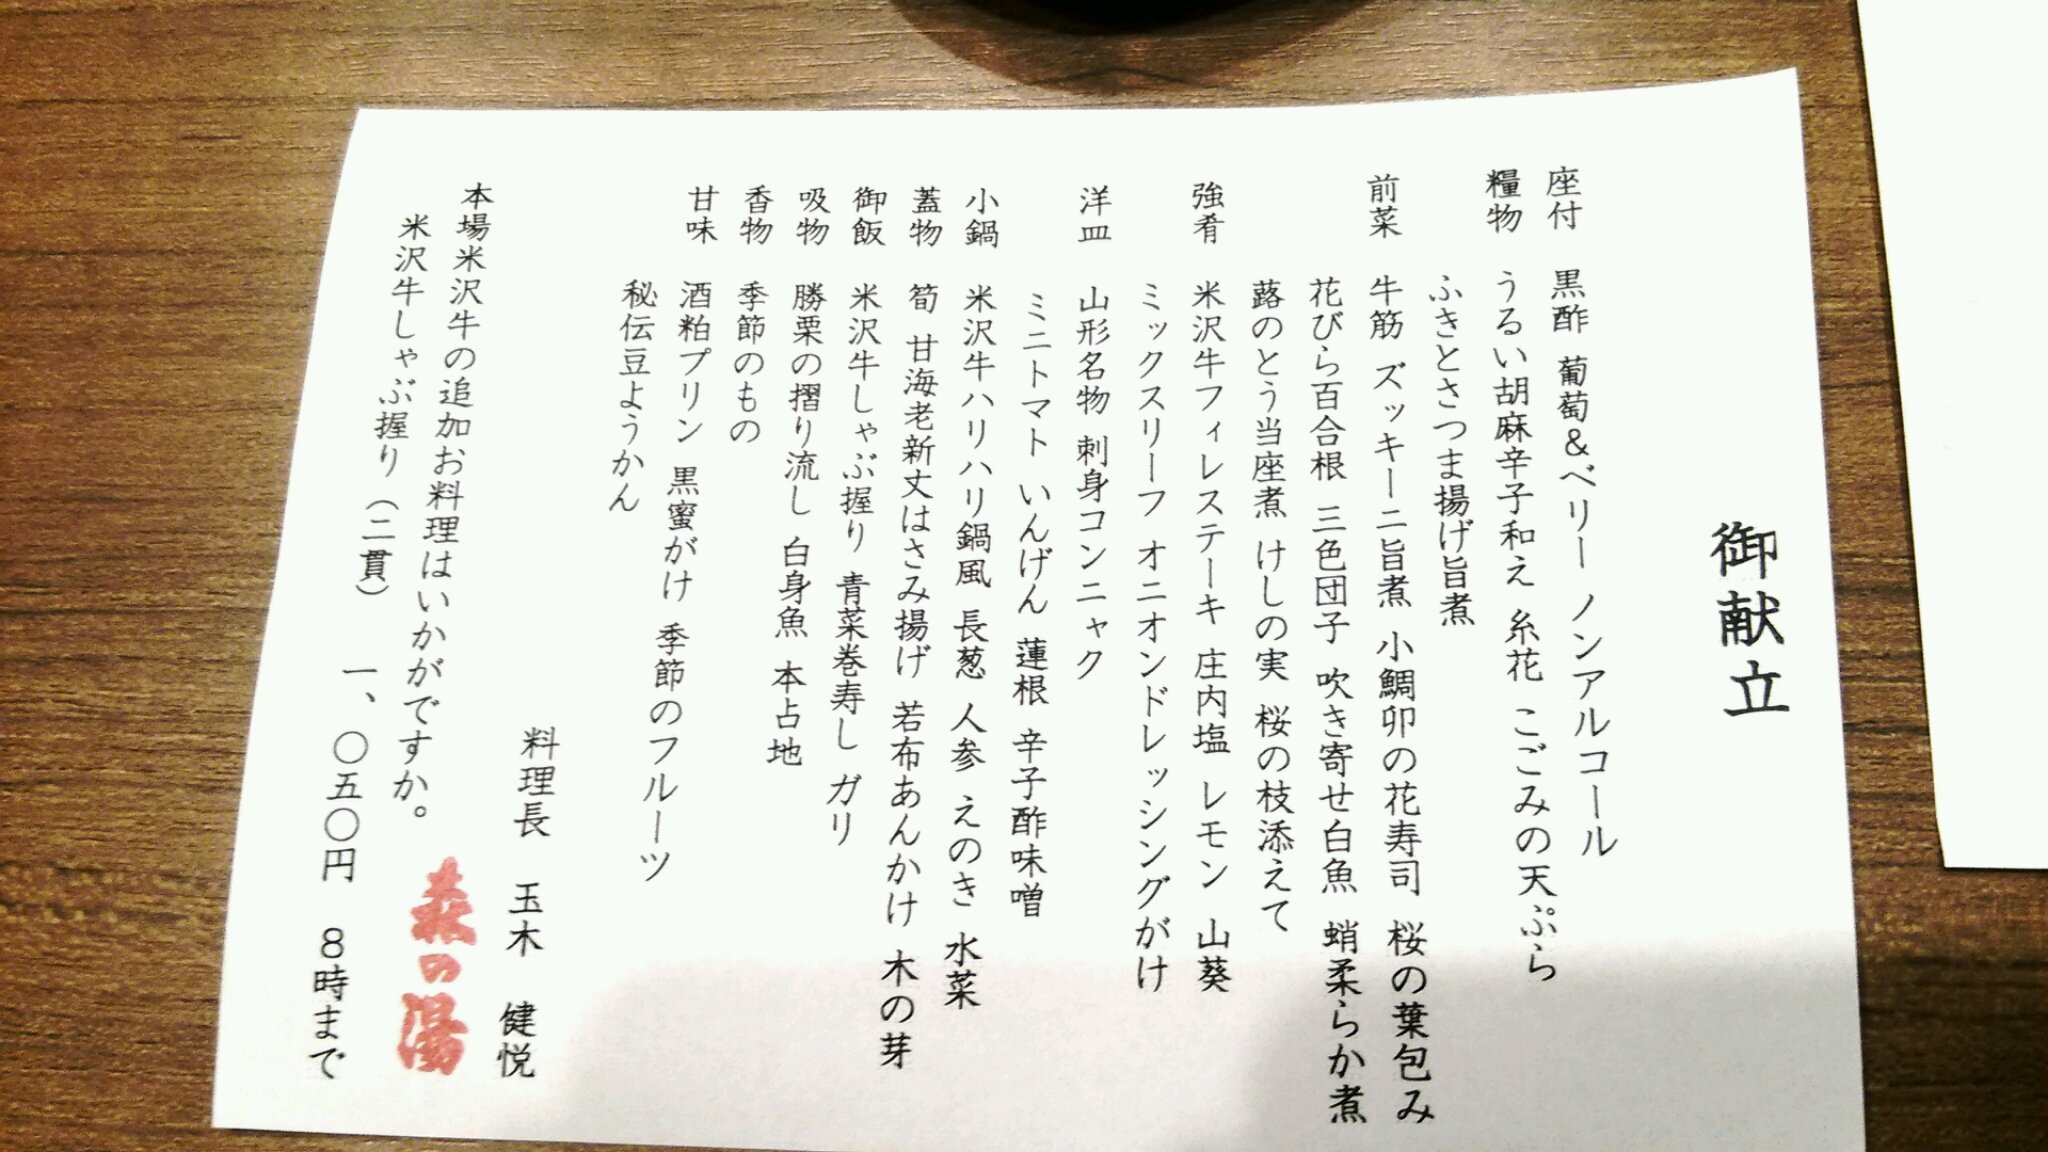 御献立
座付 黒酢 葡萄&ベリー ノンアルコール
糧物 うるい胡麻辛子和え 糸花 こごみの天ぷら
ふきとさつま揚げ旨煮
前菜 牛筋 ズッキーニ旨煮 小鯛卯の花寿司 桜の葉包み
花びら百合根 三色団子 吹き寄せ白魚 蛸柔らか煮
蕗のとう当座煮 けしの実 桜の枝添えて
強肴 米沢牛フィレステーキ 庄内塩 レモン 山葵
ミックスリーフ オニオンドレッシングがけ
洋皿 山形名物 刺身コンニャク
ミニトマト いんげん 蓮根 辛子酢味噌
小鍋 米沢牛ハリハリ鍋風 長葱 人参 えのき 水菜
蓋物 筍 甘海老新丈はさみ揚げ 若布あんかけ 木の芽
御飯 米沢牛しゃぶ握り 青菜巻寿し ガリ
吸物 勝栗の摺り流し 白身魚 本占地
香物 季節のもの
甘味 酒粕プリン 黒蜜がけ 季節のフルーツ
秘伝豆ようかん
料理長 玉木 健悦
本場米沢牛の追加お料理はいかがですか。
森の湯
米沢牛しゃぶ握り(二貫) 一、〇五〇円 8時まで